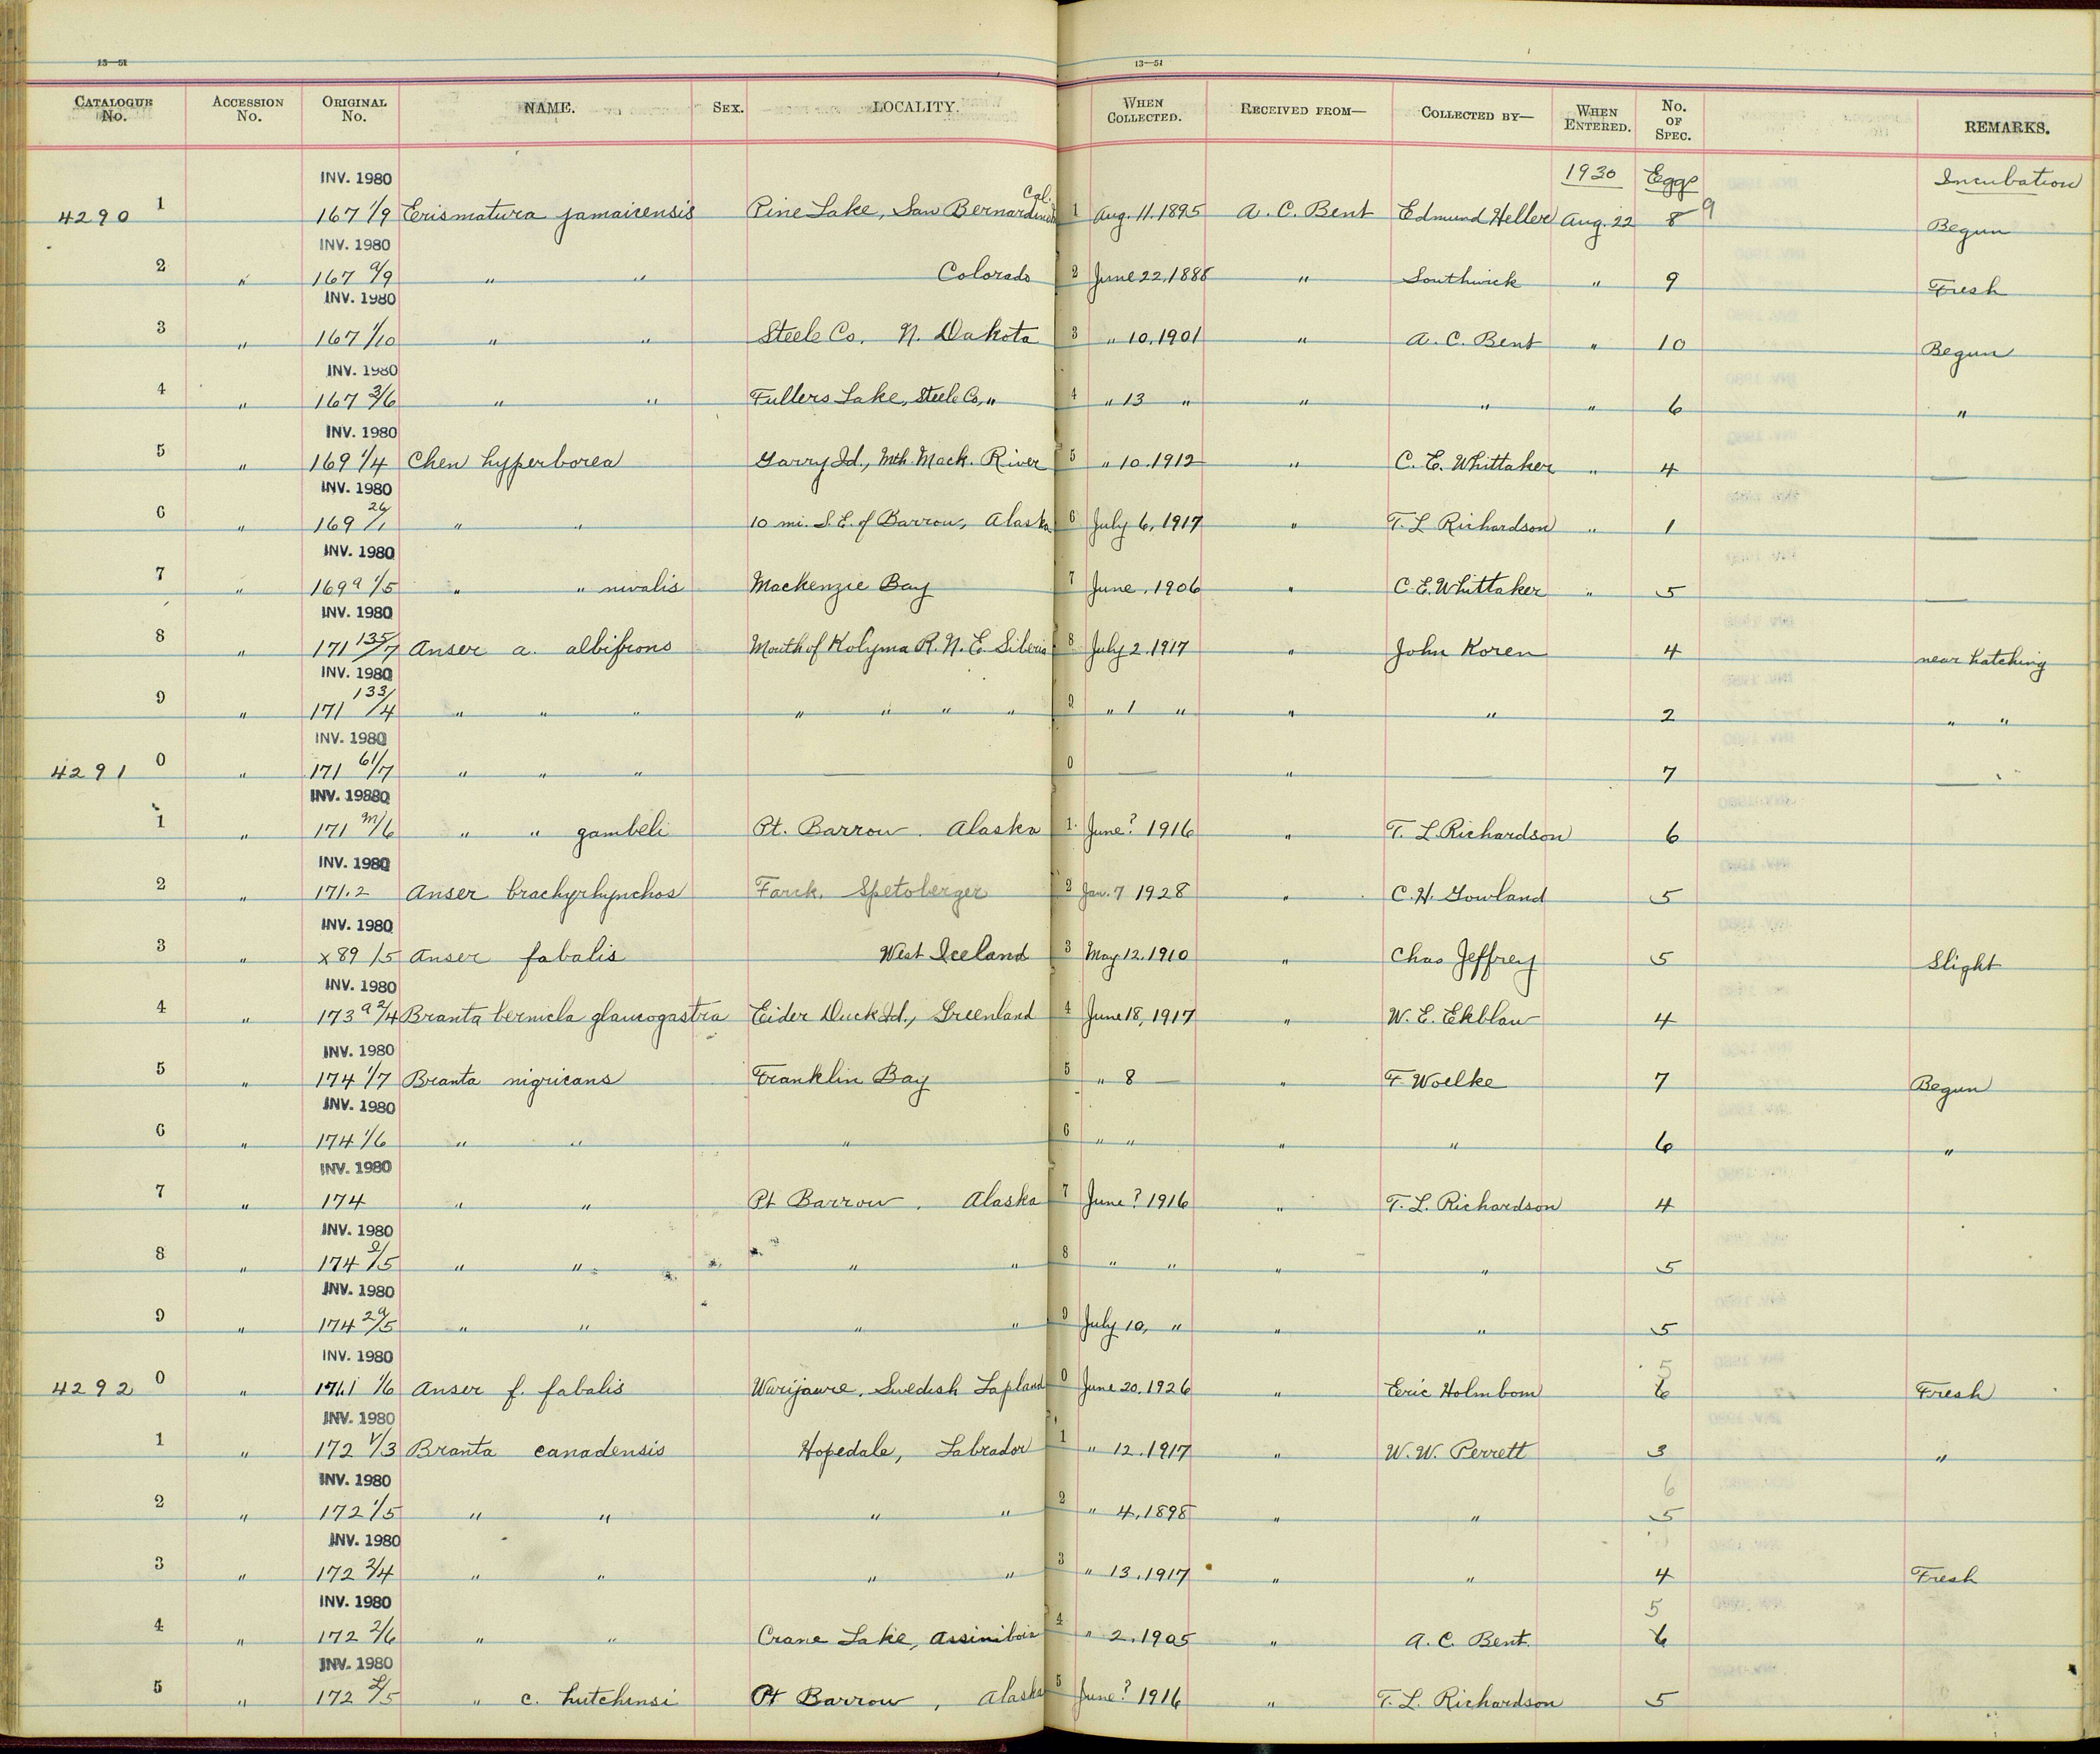 13—51 13—51
CATALOGUE No. ACCESSION No. ORIGINAL No. NAME. SEX. LOCALITY. WHEN COLLECTED. RECEIVED FROM— COLLECTED BY— WHEN ENTERED. No. OF SPEC. REMARKS.
INV. 1980 1930 Eggs Incubation
4290 1 167 1/9 Erismatura jamaicensis Pine Lake, San Bernardino Cal. 1 Aug. 11.1895 A. C. Bent Edmund Heller Aug. 22 8 9 Begun
INV. 1980
2 " 167 a/9 " " Colorado 2 June 22, 1888 " Southwick " 9 Fresh
INV. 1980
3 " 167 1/10 " " Steele Co. N. Dakota 3 " 10, 1901 " A. C. Bent " 10 Begun
INV. 1980
4 " 167 3/6 " " Fullers Lake, Steele Co, " 4 " 13 " " " " 6 "
INV. 1980
5 " 169 1/4 Chen hyperborea Garry Id., Mth. Mack. River 5 " 10, 1912 " C. E. Whittaker " 4 —
INV. 1980
6 " 169 /1 " " 10 mi. S.E. of Barrow, Alaska 6 July 6, 1917 " T. L Richardson " 1 —
INV. 1980
7 " 169a 1/5 " " nivalis Mackenzie Bay 7 June, 1906 " C. E. Whittaker " 5 —
INV. 1980
8 " 171 135/7 Anser a. albifrons Mouth of Kolyma R. N. E. Siberia 8 July 2, 1917 " John Koren 4 near hatching
INV. 1980
9 " 171 133/4 " " " " " " " 9 " 1 " " " 2 " "
INV. 1980
4291 0 " 171 61/7 " " " — 0 — " — 7 —
INV. 19880
1 " 171 m/6 " " gambeli Pt. Barrow. Alaska 1 June? 1916 " T. L. Richardson 6
INV. 1980
2 " 171.2 Anser brachyrhynchos Spetsberger 2 Jan. 7 1928 " C. H. Gowland 5
INV. 1980
3 " x89 /5 Anser fabalis West Iceland 3 May 12, 1910 " Chas Jeffrey 5 Slight
INV. 1980
4 " 173 a 2/4 Branta bernicla glaucogastra Eider Duck Id., Greenland 4 June 18, 1917 " W. E. Ekblaw 4
INV. 1980
5 " 174 1/7 Branta nigricans Franklin Bay 5 " 8 — " F Woelke 7 Begun
INV. 1980
6 " 174 1/6 " " " 6 " " " " 6 "
INV. 1980
7 " 174 " " Pt Barrow. Alaska 7 June? 1916 " T. L. Richardson 4
INV. 1980
8 " 174 2/5 " " " " 8 " " " " 5
INV. 1980
9 " 174 29/5 " " " " 9 July 10, " " " 5
INV. 1980
4292 0 " 171.1 1/6 Anser f. fabalis Warijaure, Swedish Lapland 0 June 20, 1926 " Eric Holmbom 6 5 Fresh
INV. 1980
1 " 172 1/3 Branta canadensis Hopedale, Labrador 1 " 12, 1917 " W. W. Perrett 3 "
INV. 1980
2 " 172 1/5 " " " " 2 " 4, 1898 " " 5 6
INV. 1980
3 " 172 2/4 " " " " 3 " 13, 1917 " " 4 Fresh
INV. 1980
4 " 172 2/6 " " Crane Lake, Assiniboia 4 " 2, 1905 " A. C. Bent. 6 5
INV. 1980
5 " 172 2/5 " c. hutchinsi Pt Barrow, Alaska 5 June? 1916 " T. L. Richardson 5